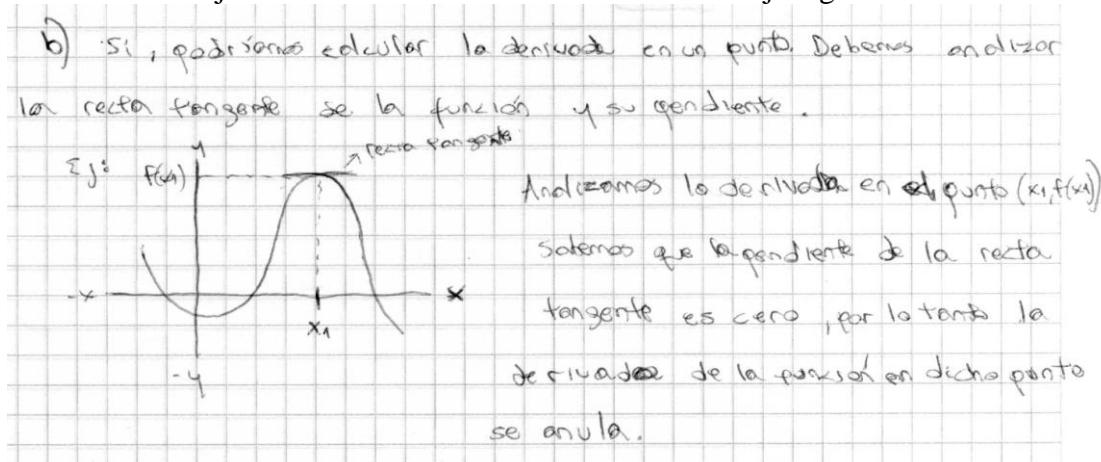 b) Si, podríamos calcular la derivada en un punto. Debemos analizar
la recta tangente de la función y su pendiente.
Ej: f(x1) y recta tangente
Analizamos la derivada en el punto (x1, f(x1))
Sabemos que la pendiente de la recta
-x x tangente es cero, por lo tanto la
x1
-y derivada de la función en dicho punto
se anula.